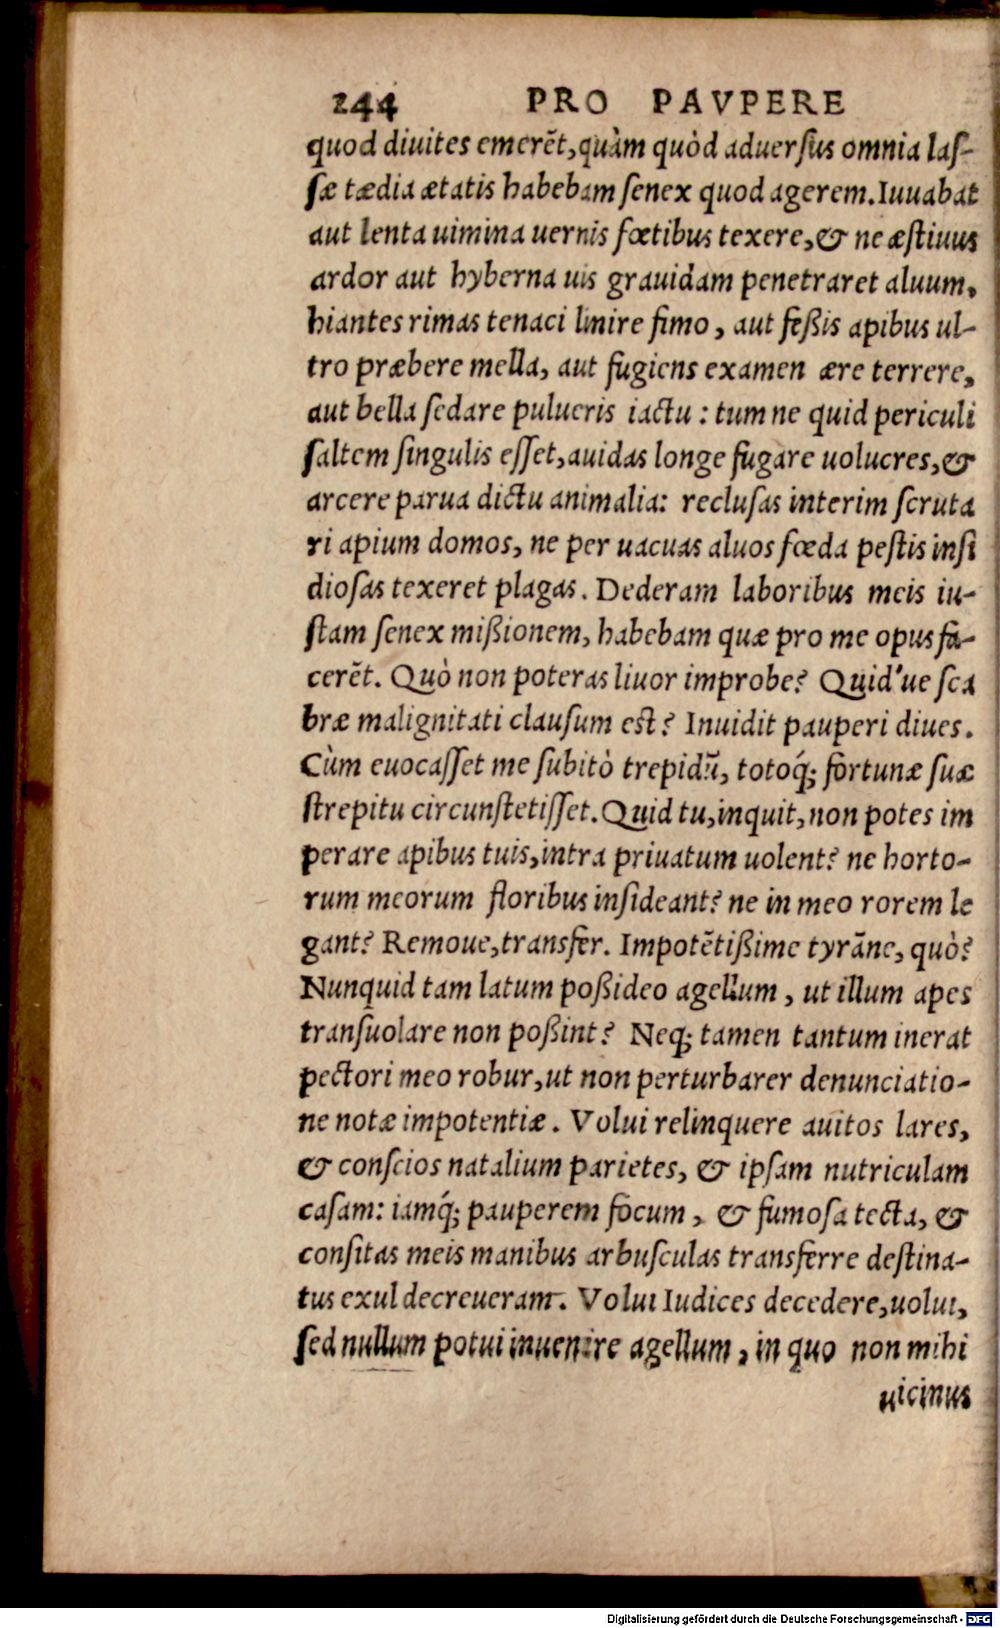 244 PRO PAVPERE
quod diuites emerẽt, quàm quòd aduersus omnia las-
sæ tædia ætatis habebam senex quod agerem. Iuuabat
aut lenta uimina uernis fœtibus texere, & ne æstiuus
ardor aut hyberna uis grauidam penetraret aluum,
hiantes rimas tenaci linire fimo, aut feßis apibus ul-
tro præbere mella, aut fugiens examen ære terrere,
aut bella sedare pulueris iactu: tum ne quid periculi
saltem singulis esset, auidas longe fugare uolucres, &
arcere parua dictu animalia: reclusas interim scruta
ri apium domos, ne per uacuas aluos fœda pestis insi
diosas texeret plagas. Dederam laboribus meis iu-
stam senex mißionem, habebam quæ pro me opus fa-
cerẽt. Quò non poteras liuor improbe? Quid'ue sca
bræ malignitati clausum est? Inuidit pauperi diues.
Cùm euocasset me subitò trepidũ, totoq́; fortunæ suæ
strepitu circunstetisset. Quid tu, inquit, non potes im
perare apibus tuis, intra priuatum uolent? ne horto-
rum meorum floribus insideant? ne in meo rorem le
gant? Remoue, transfer. Impotẽtißime tyrãne, quò?
Nunquid tam latum poßideo agellum, ut illum apes
transuolare non poßint? Neq; tamen tantum inerat
pectori meo robur, ut non perturbarer denunciatio-
ne notæ impotentiæ. Volui relinquere auitos lares,
& conscios natalium parietes, & ipsam nutriculam
casam: iamq́; pauperem focum, & fumosa tecta, &
consitas meis manibus arbusculas transferre destina-
tus exul decreueram. Volui Iudices decedere, uolui,
sed nullum potui inuenire agellum, in quo non mihi
uicinus
Digitalisierung gefördert durch die Deutsche Forschungsgemeinschaft - DFG